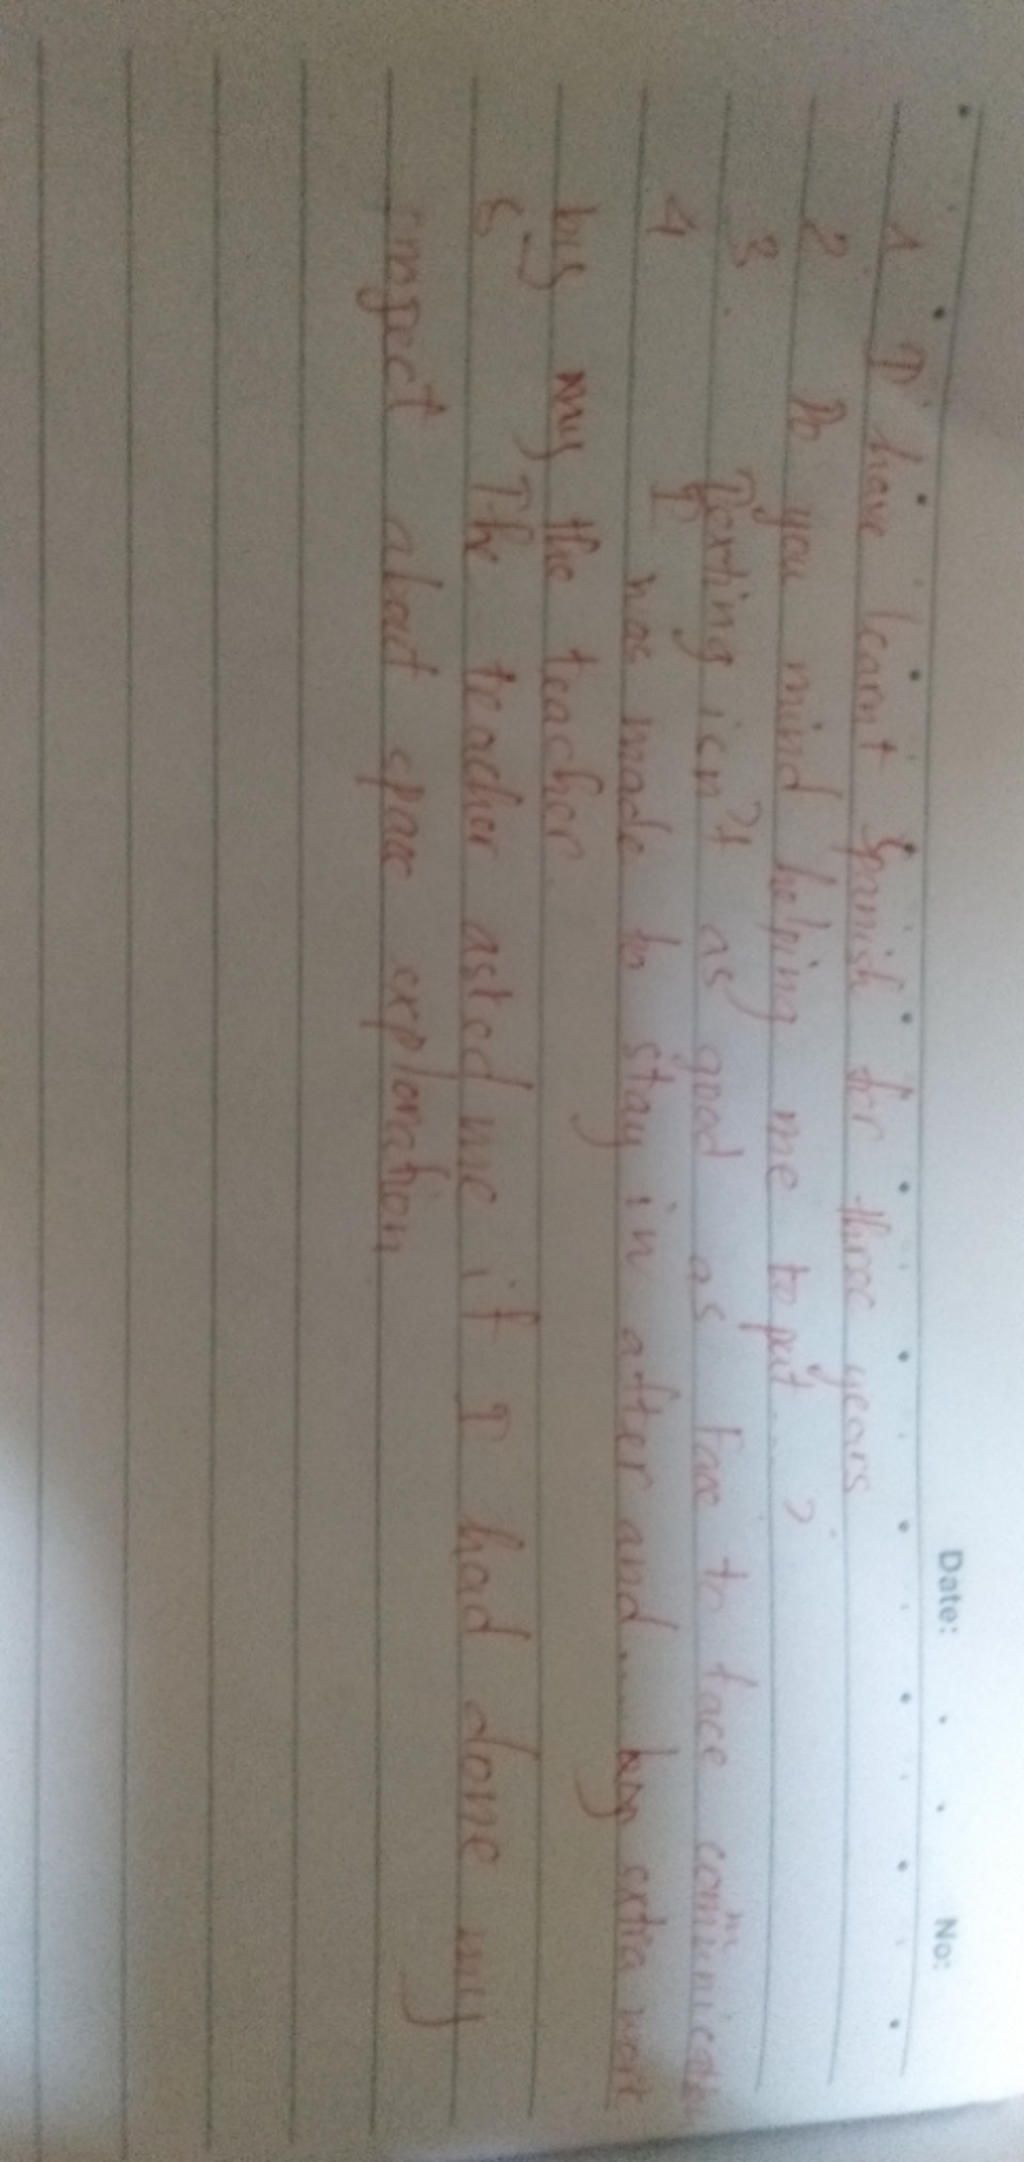 Date: No:
1 I have learnt Spanish for three years
2 Do you mind helping me to put ... ?
3. Texting isn't as good as face to face
4 I was made to stay in after and ... extra work
by my the teacher.
5 The teacher asked me if I had done my
project about space exploration